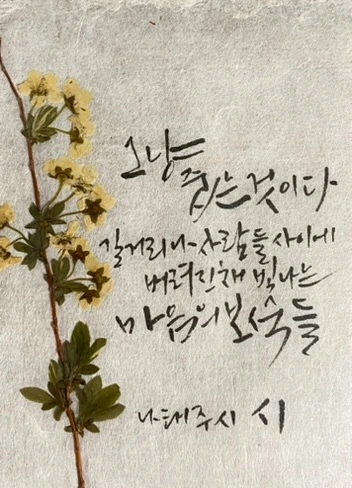 그냥
줍는 것이다
길거리나 사람들 사이에
버려진 채 빛나는
마음의 보석들
나태주 시 시